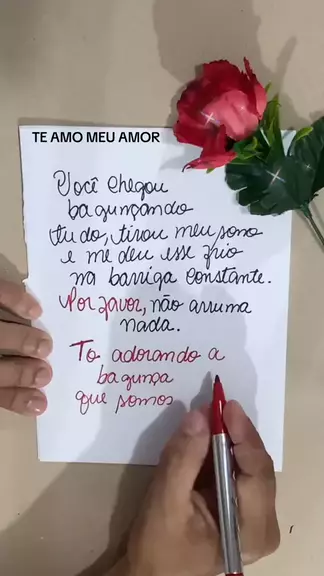 TE AMO MEU AMOR
Você chegou
bagunçando
tudo, tirou meu sono
e me deu esse frio
na barriga constante.
Por favor, não arruma
nada.
To adorando a
bagunça
que somos